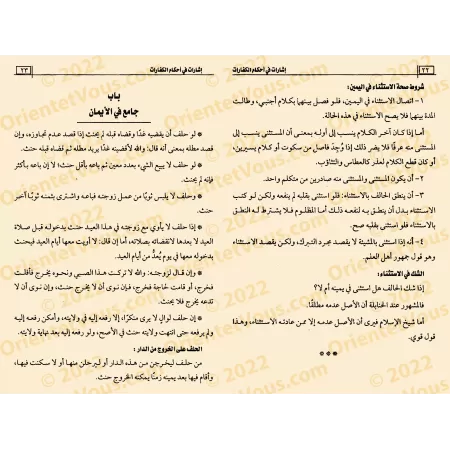 ٢٢ إشارات في أحكام الكفارات
شروط صحة الاستثناء في اليمين:
١- اتصال الاستثناء في اليمين، فلو فصل بينهما بكلام أجنبي، وطالت
المدة بينهما فلا يصح الاستثناء في هذه الحالة.
أما إذا كان آخر الكلام ينسب إلى أوله بمعنى أن المستثنى ينسب إلى
المستثنى منه عرفًا فلا يضر ذلك إذا وُجِد فاصل من سكوت أو كلام يسيرين،
أو كان قطع الكلام لعذر كالعطاس والتثاؤب.
٢- أن يكون المستثنى والمستثنى منه صادرين من متكلم واحد.
٣- أن ينطق الحالف بالاستثناء: فلو استثنى بقلبه لم ينفعه ولكن لو كتب
الاستثناء بدل أن ينطق به لنفعه ذلك أما المظلوم فلا يشترط له النطق
بالاستثناء فلو استثنى بقلبه صح.
٤- أنه إذا استثنى بالمشيئة لا يقصد مجرد التبرك، ولكن يقصد الاستثناء
وهو قول جمهور أهل العلم.
الشك في الاستثناء:
إذا شك الحالف هل استثنى في يمينه أم لا؟
فالمشهور عند الحنابلة أن الأصل عدمه مطلقًا.
أما شيخ الإسلام فيرى أن الأصل عدمه إلا ممن عادته الاستثناء، وهذا
قول قوي.
***
إشارات في أحكام الكفارات ٢٣
باب
جامع في الأيمان
* لو حلف أن يقضيه غدًا وقضاه قبله لم يحنث إذا قصد عدم تجاوزه، وإن
قصد مطله بمعنى أنه قال: والله لأقضينه غدًا يريد مطله ثم قضاه قبله حنث.
* لو حلف لا يبيع الشيء بعدد معين فباعه بأقل منه حنث، لا إن باعه بأكثر
فإنه لم يحنث.
* وحلف لا يلبس ثوبًا من عمل زوجته فباعه واشترى بثمنه ثوبًا آخر
حنث.
* إذا حلف لا يأوي مع زوجته في هذا العيد حنث بدخوله قبل صلاة
العيد لا بعدها لانقضائه بصلاته، أما إن قال: لا أويت معها أيام العيد فيحنث
بدخوله معها في يوم يُعدُّ من أيام العيد.
* وإن قال لزوجته: والله لا تركت هذا الصبي ونحوه يخرج فأفلت
فخرج، أو قامت لحاجة فخرج، فإن نوى أن لا يخرج حنث، وإن نوى أن لا
تدعه يخرج فلا يحنث.
* إن حلف لوالٍ لا يرى منكرًا، إلا رفعه إليه في ولايته، وأمكن رفعه إليه
ولم يرفعه حتى انتهت ولايته حنث في الأصح، ولو رفعه إليه بعد نهاية ولايته.
الحلف على الخروج من الدار:
من حلف ليخرجن من هذه الدار أو ليرحلن منها أو لا سكنت فيها،
وأقام فيها بعد يمينه زمنًا يمكنه الخروج حنث.
© 2022
OrientetVous.com